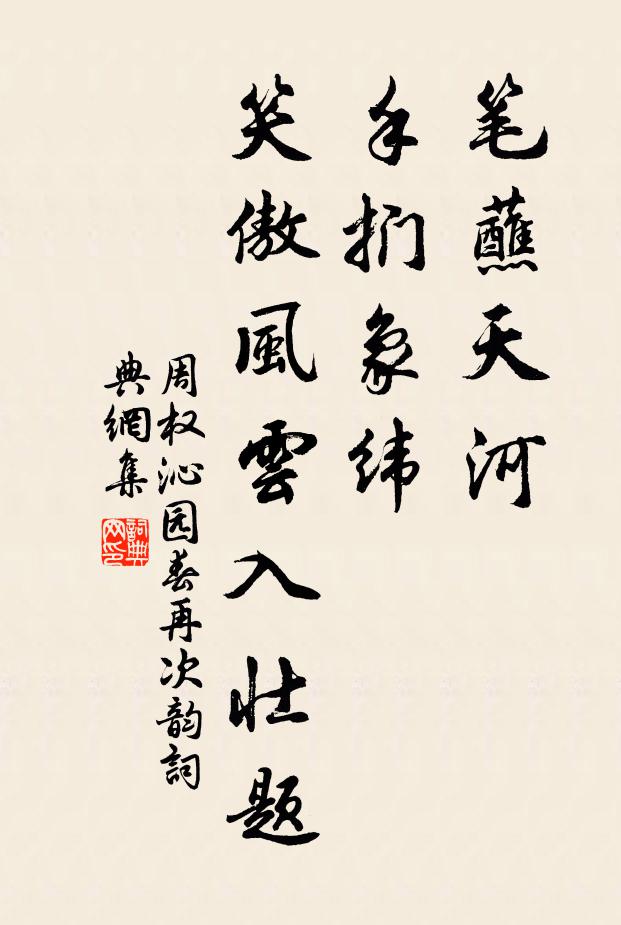 笔蘸天河
手扪象纬
笑傲風雲入壮题
周权沁园春再次韵詞
典網集
詞典网印